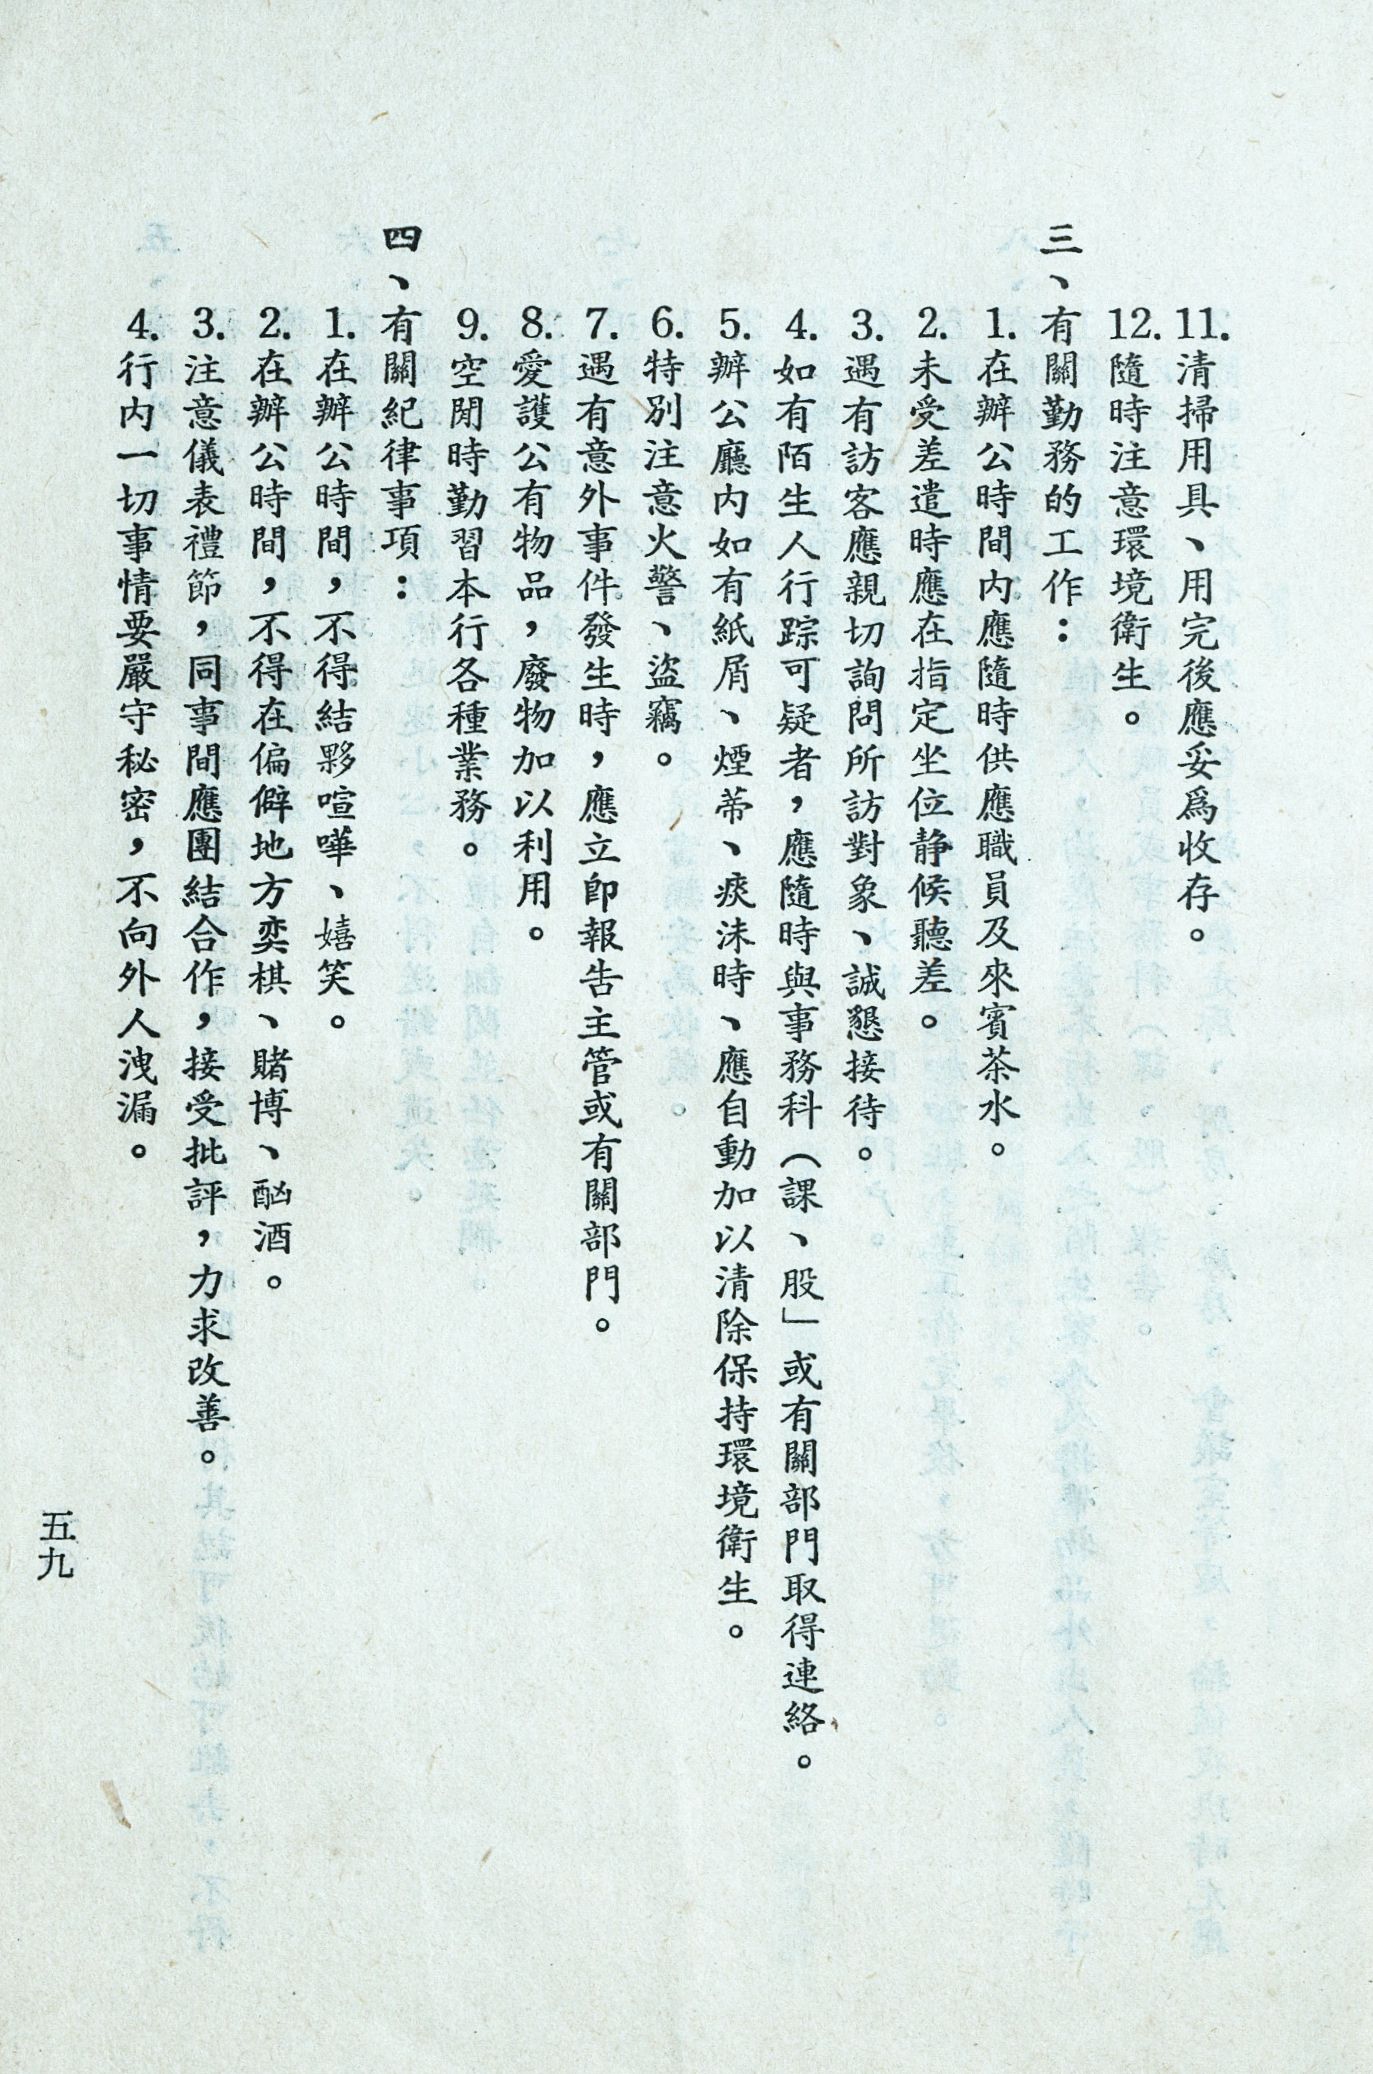 11.清掃用具、用完後應妥爲收存。
12.隨時注意環境衛生。
三、有關勤務的工作：
1.在辦公時間內應隨時供應職員及來賓茶水。
2.未受差遣時應在指定坐位静候聽差。
3.遇有訪客應親切詢問所訪對象、誠懇接待。
4.如有陌生人行踪可疑者，應隨時與事務科（課、股」或有關部門取得連絡。
5.辦公廳內如有紙屑、煙蒂、痰沫時、應自動加以清除保持環境衛生。
6.特別注意火警、盜竊。
7.遇有意外事件發生時，應立卽報告主管或有關部門。
8.愛護公有物品，廢物加以利用。
9.空閒時勤習本行各種業務。
四、有關紀律事項：
1.在辦公時間，不得結夥喧嘩、嬉笑。
2.在辦公時間，不得在偏僻地方奕棋、賭博、酗酒。
3.注意儀表禮節，同事間應團結合作，接受批評，力求改善。
4.行內一切事情要嚴守秘密，不向外人洩漏。
五九